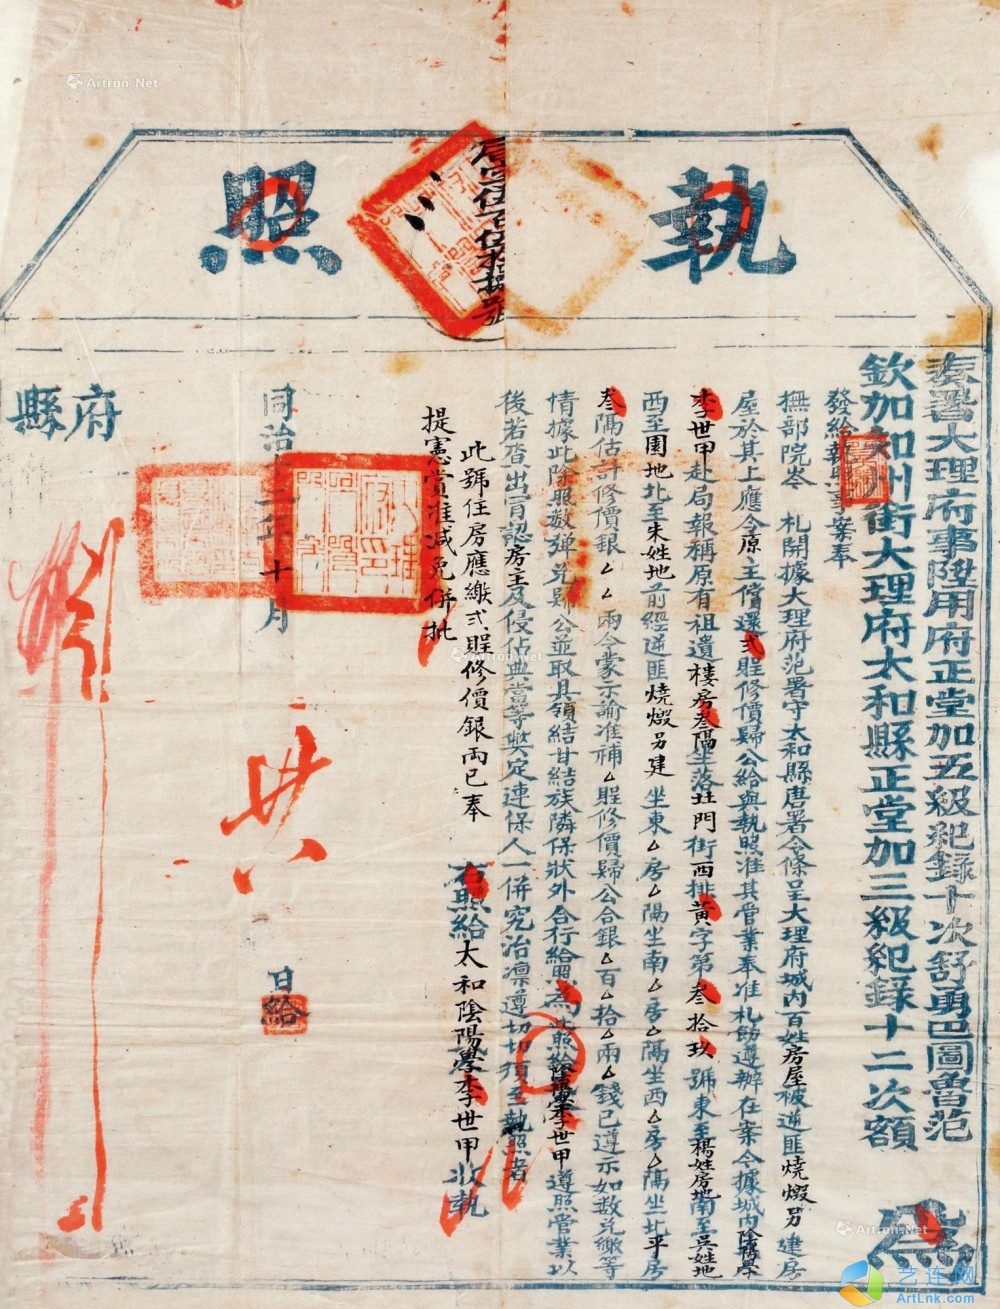 執照
奏署大理府事陞用府正堂加五級紀錄十次舒勇巴圖魯范
欽加知州銜大理府太和縣正堂加三級紀錄十二次額
為
發給執照事案奉
撫部院岑 札開據大理府范署守太和縣唐署令條呈大理府城內百姓房屋被逆匪燒燬另建房
屋於其上應令原主償還弍程修價歸公給與執照准其管業奉准札飭遵辦在案今據城內陰陽學
李世甲赴局報稱原有祖遺樓房叁隔坐落北門街西排黃字第叁拾玖號東至楊姓房地南至吳姓地
西至園地北至朱姓地前經逆匪燒燬另建坐東△房△隔坐南△房△隔坐西△房△隔坐北平房
叁隔估計修價銀△△兩今蒙示諭准補△程修價歸公合銀△百△拾△兩△錢已遵示如數兌繳等
情據此除照數彈兌歸公並取具領結甘結族隣保狀外合行給照為此照給陰陽學李世甲遵照管業以
後若查出冒認房主及侵佔典當等獘定連保人一併究治凛遵切切須至執照者
此號住房應繳弍程修價銀兩已奉
提憲賞准减免併批
右照給太和陰陽學李世甲收執
同治十二年十月
日給
府
縣
Artron.Net
Artron.Net
Artron.Net
艺连网
ArtLnk.com